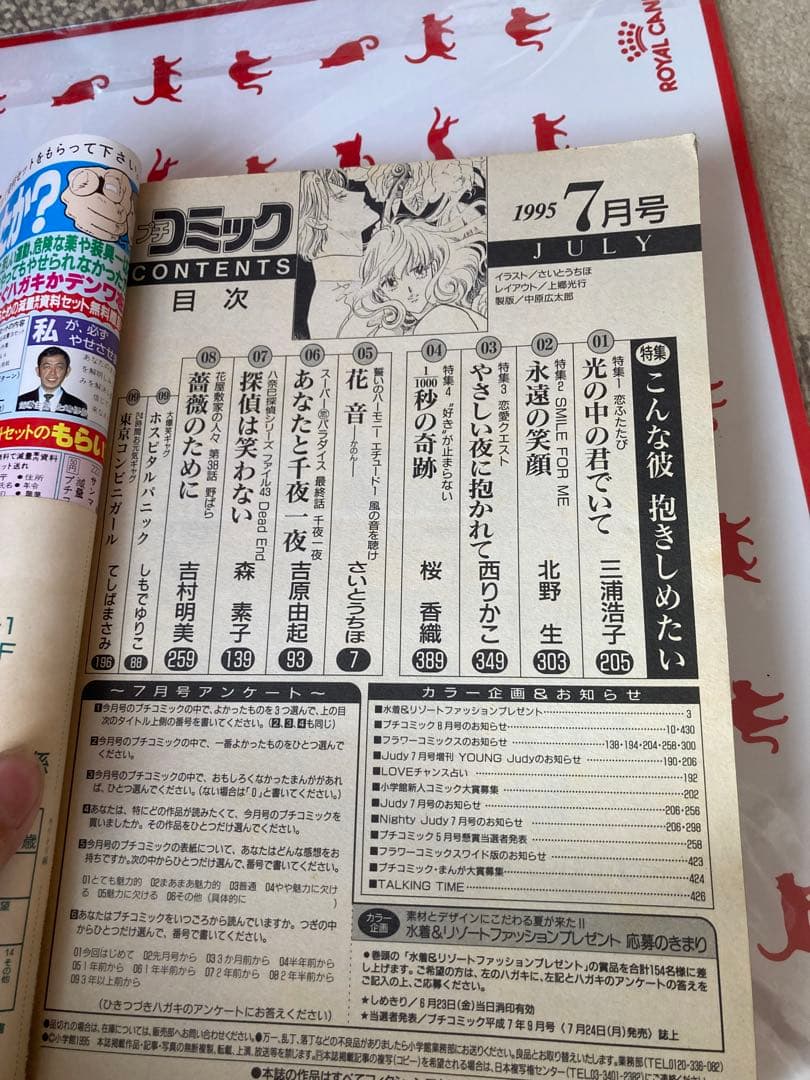 ROYAL CAN
セットをもらって下さい
か?
運動、危険な薬や装具
てもやせられなかった
ハガキかデンワ
ための減量資料セット無料
私が、必ず
やせさせ
料セットのもらい
プチコミック
CONTENTS
目次
1995 7月号
JULY
イラスト/さいとうちほ
レイアウト/上郷光行
製版/中原広太郎
特集 こんな彼 抱きしめたい
01 特集1 恋ふたたび
光の中の君でいて 三浦浩子 205
02 特集2 SMILE FOR ME
永遠の笑顔 北野 生 303
03 特集3 恋愛クエスト
やさしい夜に抱かれて 西りかこ 349
04 特集4 “好き”が止まらない
1/1000秒の奇跡 桜 香織 389
05 誓いのハーモニー エチュード1 風の音を聴け
花音 ―かのん― さいとうちほ 7
06 スーパー㊙パラダイス 最終話 千夜一夜
あなたと千夜一夜 吉原由起 93
07 八奈巳探偵シリーズ ファイル43 Dead End
探偵は笑わない 森 素子 139
08 花屋敷家の人々 第38話 野ばら
薔薇のために 吉村明美 259
09 大爆笑ギャグ
ホスピタルパニック しもでゆりこ 88
09 24時間お元気ギャグ
東京コンビニガール てしばまさみ 196
〜7月号アンケート〜
1今月号のプチコミックの中で、よかったものを3つ選んで、上の目
次のタイトル上側の番号を書いてください。(2、3、4も同じ)
2今月号のプチコミックの中で、一番よかったものをひとつ選んで
ください。
3今月号のプチコミックの中で、おもしろくなかったまんががあれ
ば、ひとつ選んでください。(ない場合は「0」と書いてください。)
4あなたは、特にどの作品が読みたくて、今月号のプチコミックを
買いましたか。その作品をひとつ選んでください。
5今月号のプチコミックの表紙について、あなたはどんな感想をお
持ちですか。次の中からひとつだけ選んで、番号で書いてください。
01とても魅力的 02まあまあ魅力的 03普通 04やや魅力に欠け
る 05魅力に欠ける 06その他(具体的に )
6あなたはプチコミックをいつごろから読んでいますか。つぎの中
からひとつだけ選んで、番号で書いてください。
01今回はじめて 02先月号から 03 3か月前から 04半年前から
05 1年前から 06 1年半前から 07 2年前から 08 2年半前から
09 3年以上前から
(ひきつづきハガキのアンケートにお答えください)
カラー企画&お知らせ
■水着&リゾートファッションプレゼント 3
■プチコミック8月号のお知らせ 10・430
■フラワーコミックスのお知らせ 138・194・204・258・300
■Judy7月号増刊 YOUNG Judyのお知らせ 190・206
■LOVEチャンス占い 192
■小学館新人コミック大賞募集 202
■Judy7月号のお知らせ 206・256
■Nighty Judy7月号のお知らせ 206・298
■プチコミック5月号懸賞当選者発表 258
■フラワーコミックスワイド版のお知らせ 423
■プチコミック・まんが大賞募集 424
■TALKING TIME 426
カラー企画
素材とデザインにこだわる夏が来た!!
水着&リゾートファッションプレゼント 応募のきまり
●巻頭の「水着&リゾートファッションプレゼント」の賞品を合計154名様に差
し上げます。ご希望の方は、左のハガキに、左記とハガキのアンケートの答えを
ご記入の上、ご応募ください。
★しめきり/6月23日(金)当日消印有効
★当選者発表/プチコミック平成7年9月号〈7月24日(月)発売〉誌上
●品切れの場合は、在庫については、販売部へお問い合わせください。●万一、乱丁、落丁などの不良品がありましたら小学館業務部にお送りください。良品とお取り替えいたします。業務部(TEL0120-336-082)
©小学館1995 本誌掲載作品・記事・写真の無断複製、転載、上演、放送等を禁じます。